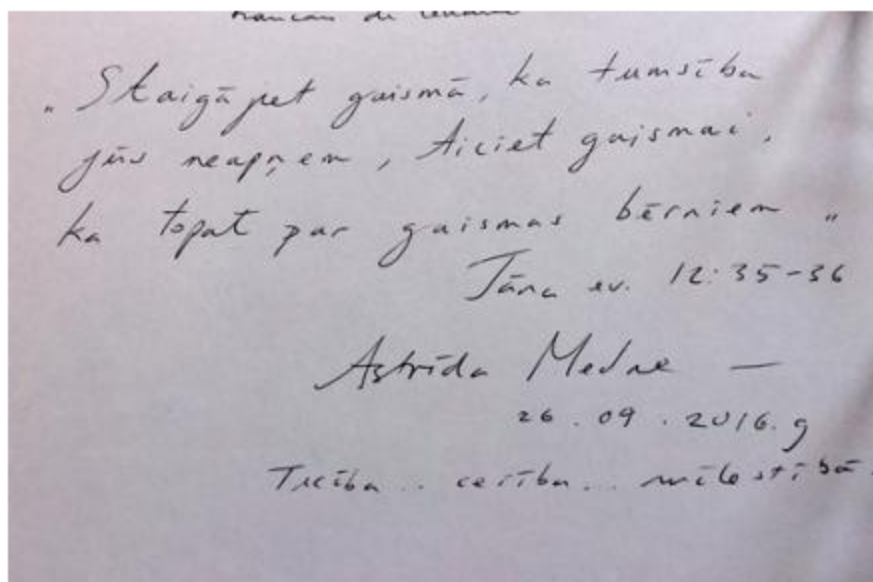 „Staigājiet gaismā, ka tumsība
jūs neapņem, ticiet gaismai,
ka topat par gaismas bērniem"
Jāņa ev. 12:35-36
Astrīda Medne —
26.09.2016.g
Ticība.. cerība... mīlestībā